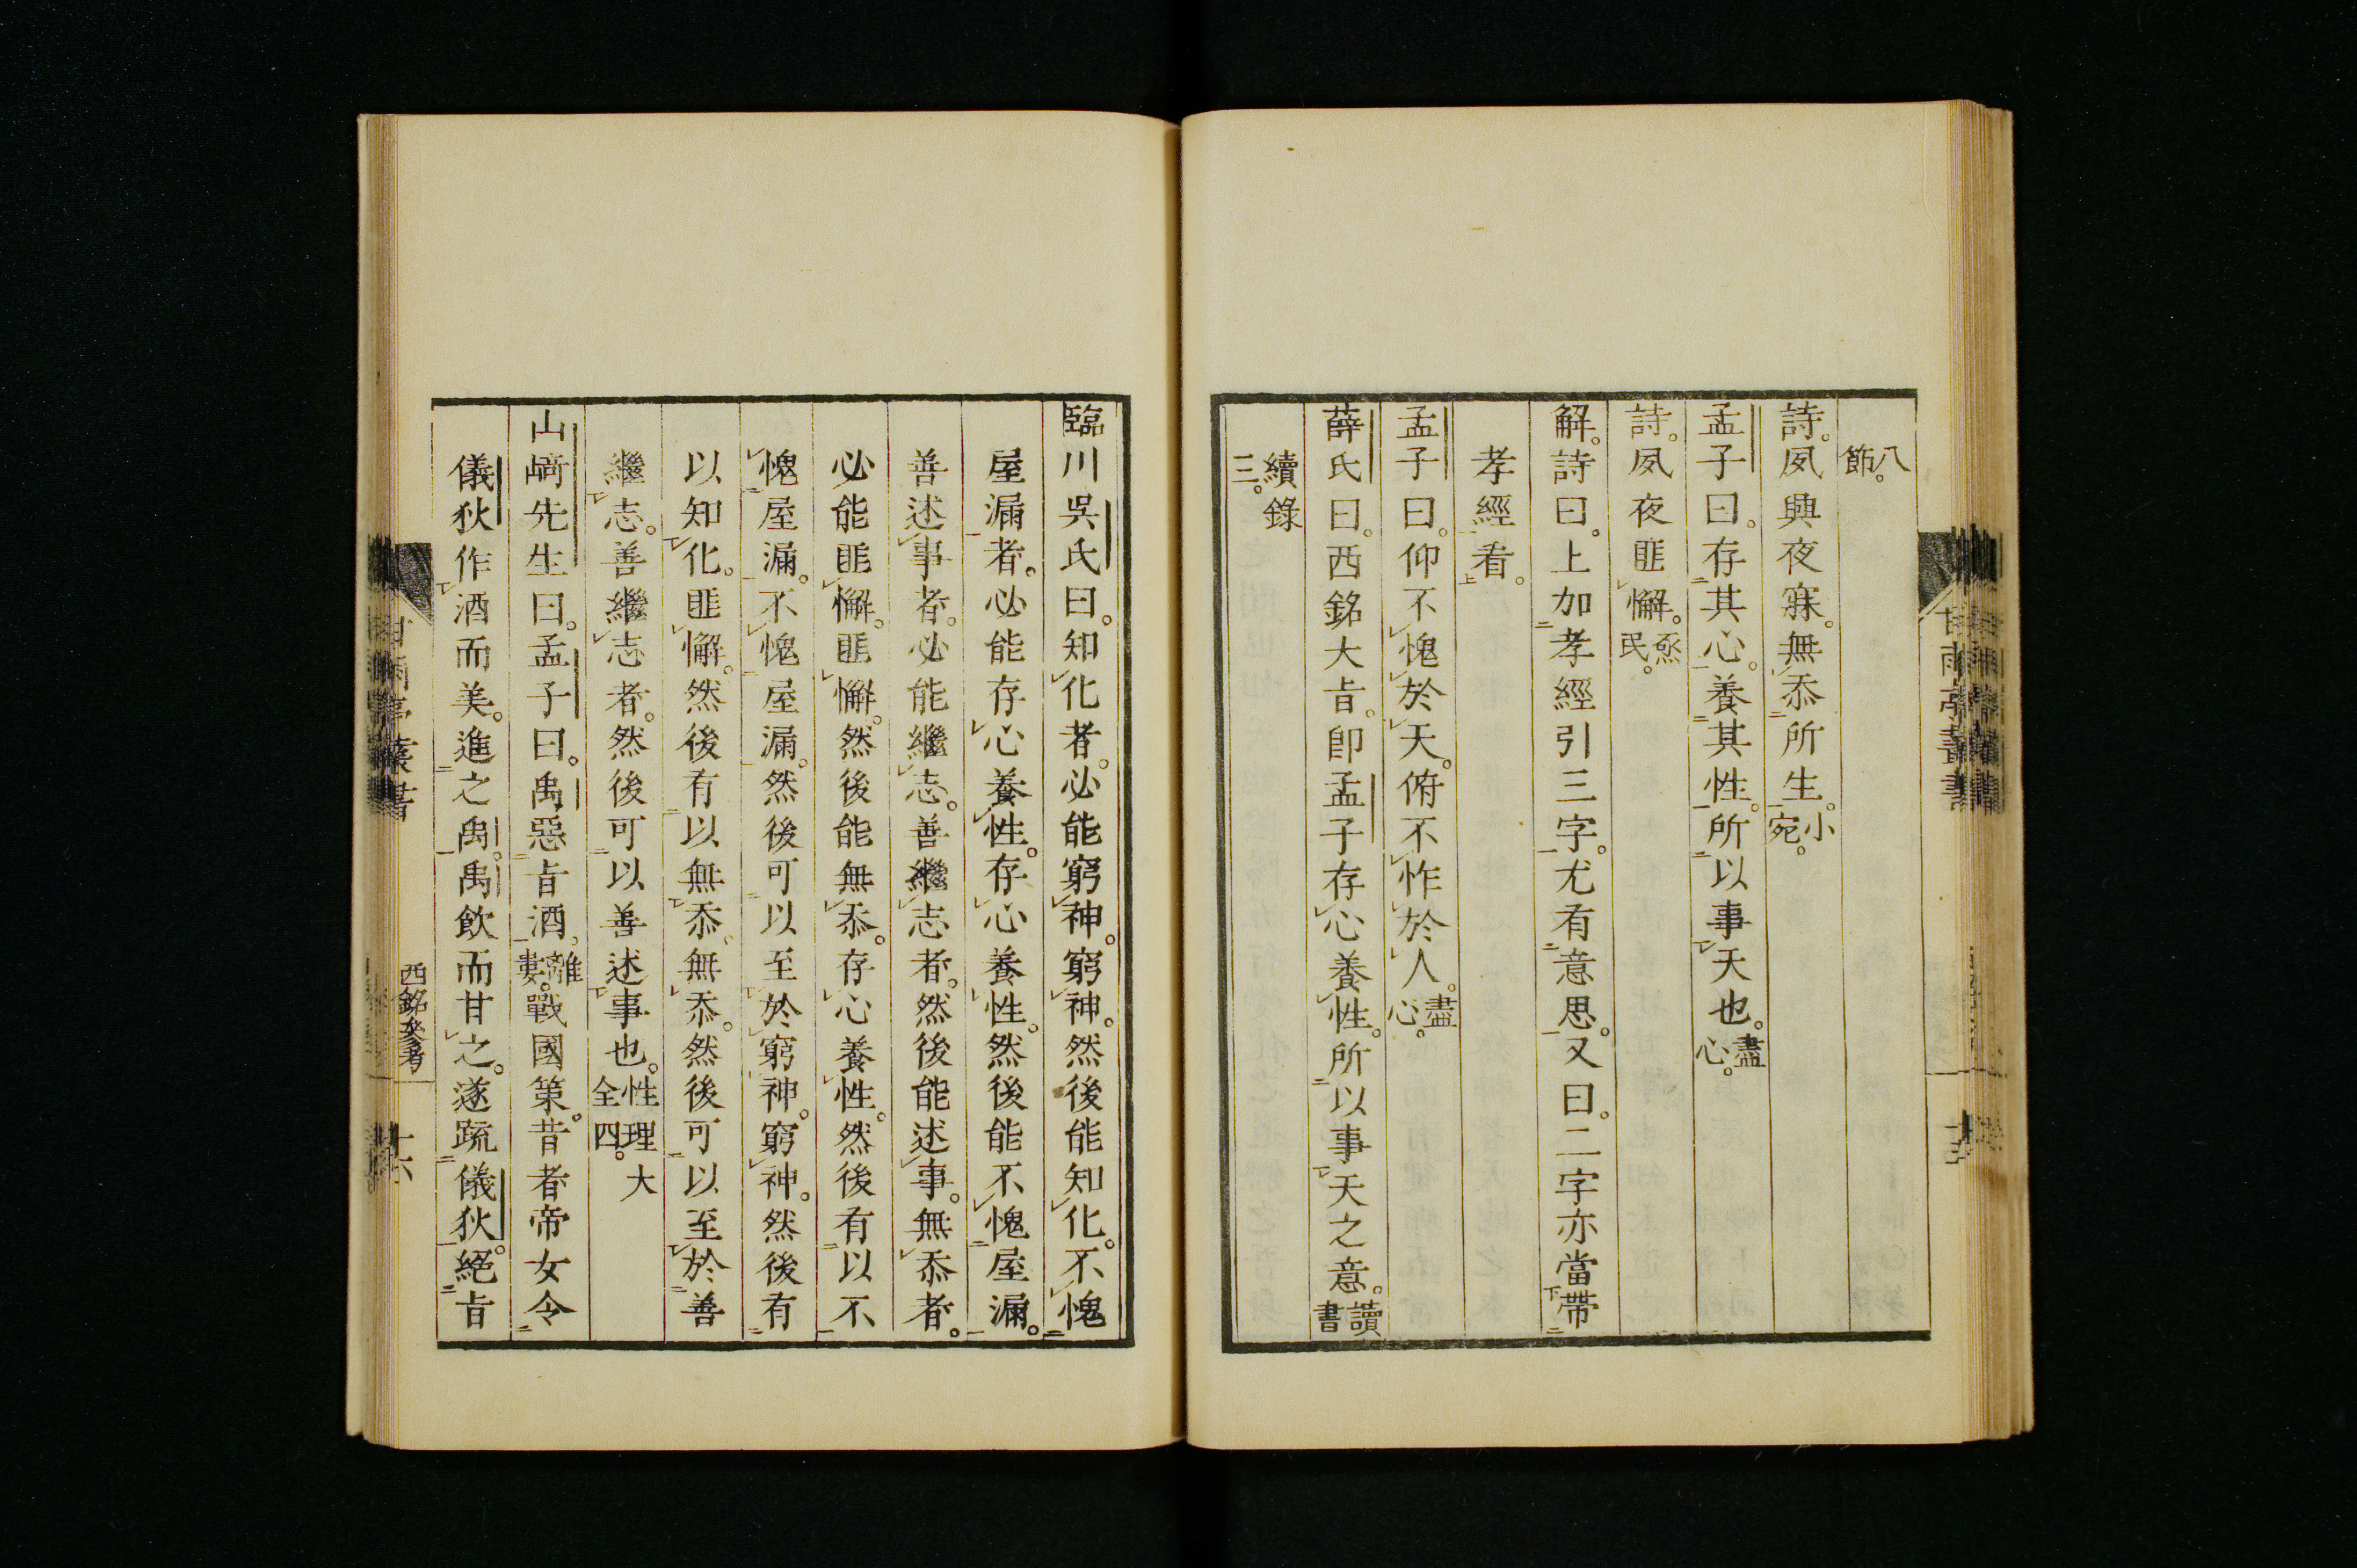 八節。
詩。夙興夜寐。無忝所生。小宛。
孟子曰。存其心。養其性。所以事天也。盡心。
詩。夙夜匪懈。烝民。
解。詩曰。上加孝經引三字。尤有意思。又曰。二字亦當帶
孝經看。
孟子曰。仰不愧於天。俯不怍於人。盡心。
薛氏曰。西銘大㫖。卽孟子存心養性。所以事天之意。讀書
續錄三。
臨川吳氏曰。知化者。必能窮神。窮神。然後能知化。不愧
屋漏者。必能存心養性。存心養性。然後能不愧屋漏。
善述事者。必能繼志。善繼志者。然後能述事。無忝者。
必能匪懈。匪懈。然後能無忝。存心養性。然後有以不
愧屋漏。不愧屋漏。然後可以至於窮神。窮神。然後有
以知化。匪懈。然後有以無忝。無忝。然後可以至於善
繼志。善繼志者。然後可以善述事也。性理大全四。
山﨑先生曰。孟子曰。禹惡㫖酒。離婁。戰國策。昔者帝女令
儀狄作酒而美。進之禹。禹飮而甘之。遂疏儀狄。絕㫖
甘雨亭叢書
西銘參考
十六